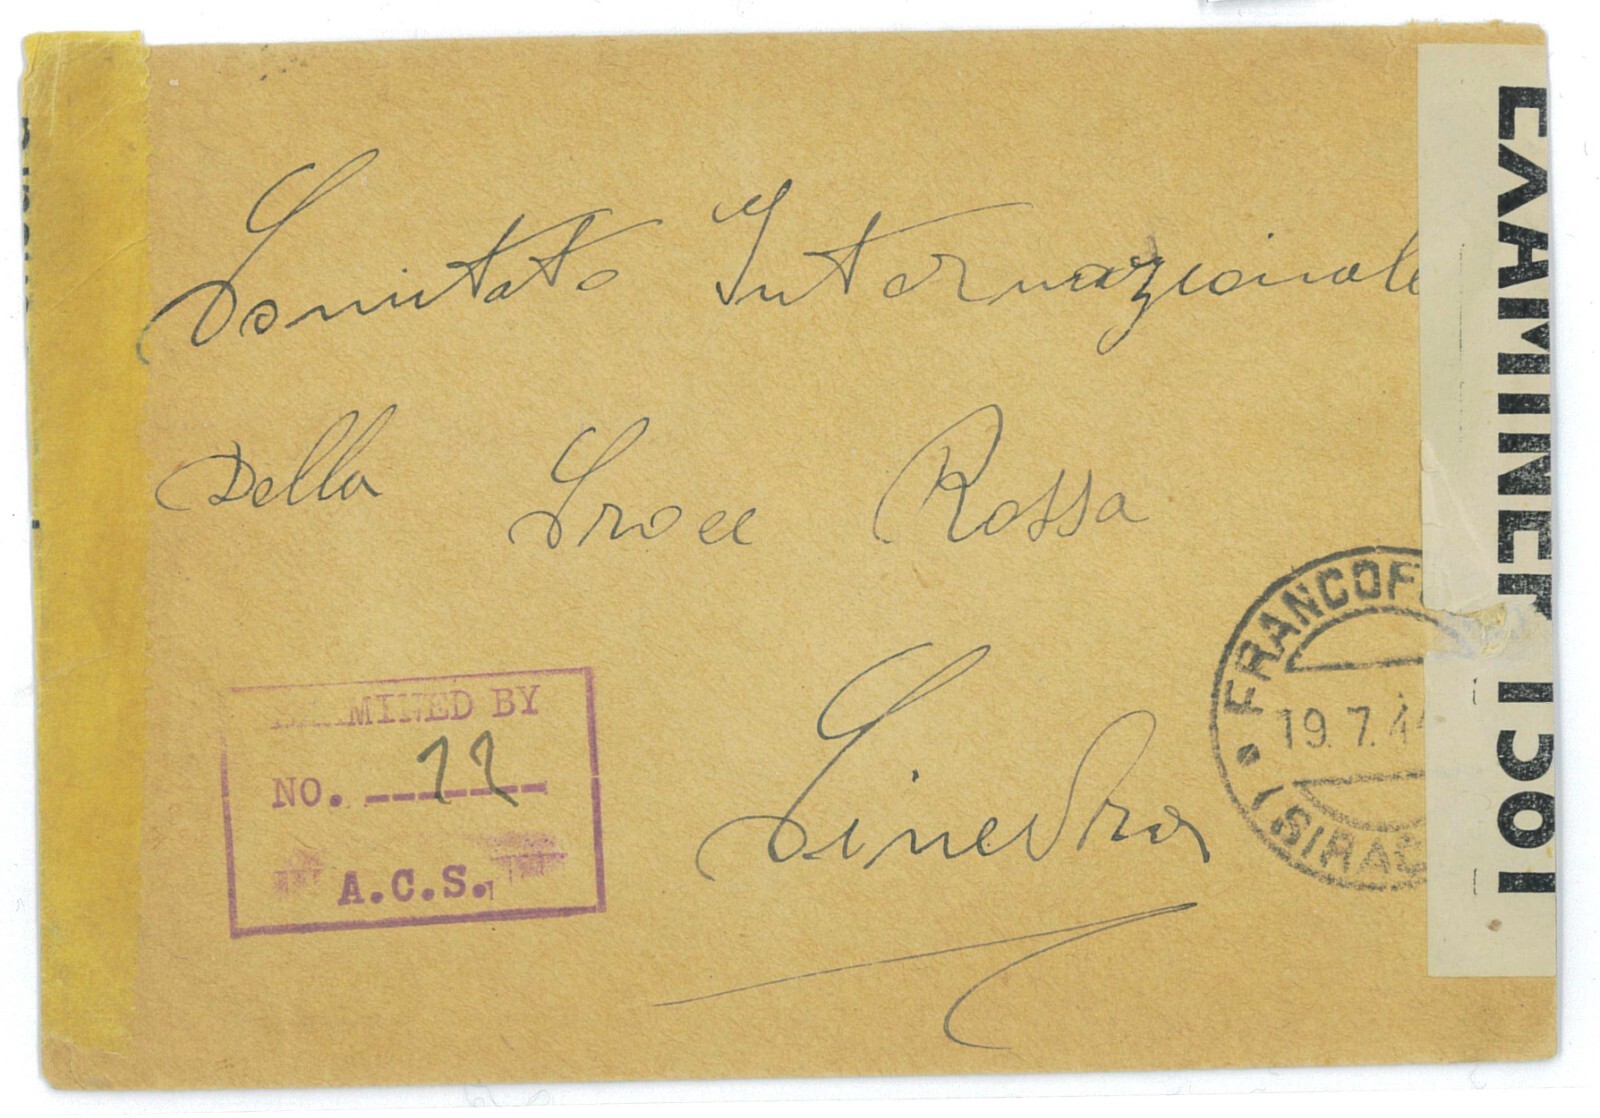 Comitato Internazionale
Della Croce Rossa
Ginevra
EXAMINED BY
NO. 22
A.C.S.
FRANCOFO
19.7.44
(SIRAC
EXAMINER